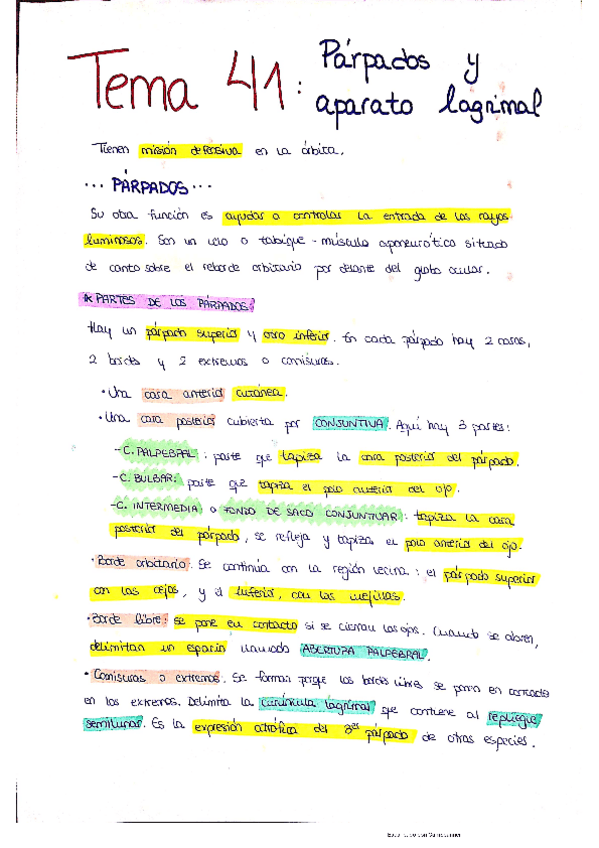 Tema 41: Párpados y
aparato lagrimal
Tienen misión defensiva en la órbita.
... PÁRPADOS ...
Su otra función es ayudar a controlar la entrada de los rayos
luminosos. Son un velo o tabique-músculo aponeurótico situado
de canto sobre el reborde orbitario por delante del globo ocular.
* PARTES DE LOS PÁRPADOS:
Hay un párpado superior y otro inferior. En cada párpado hay 2 caras,
2 bordes y 2 extremos o comisuras.
· Una cara anterior cutánea.
· Una cara posterior cubierta por CONJUNTIVA. Aquí hay 3 partes:
- C. PALPEBRAL: parte que tapiza la cara posterior del párpado.
- C. BULBAR: parte que tapiza el polo anterior del ojo.
- C. INTERMEDIA o FONDO DE SACO CONJUNTIVAR: tapiza la cara
posterior del párpado, se refleja y tapiza el polo anterior del ojo.
· Borde orbitario. Se continúa con la región vecina: el párpado superior
con las cejas, y el inferior, con las mejillas.
· Borde libre: se pone en contacto si se cierran los ojos. Cuando se abren,
delimitan un espacio llamado ABERTURA PALPEBRAL.
· Comisuras o extremos. Se forman porque los bordes libres se ponen en contacto
en los extremos. Delimita la carúncula lagrimal que contiene al repliegue
semilunar. Es la expresión atrófica del 3er párpado de otras especies.
Escaneado con CamScanner